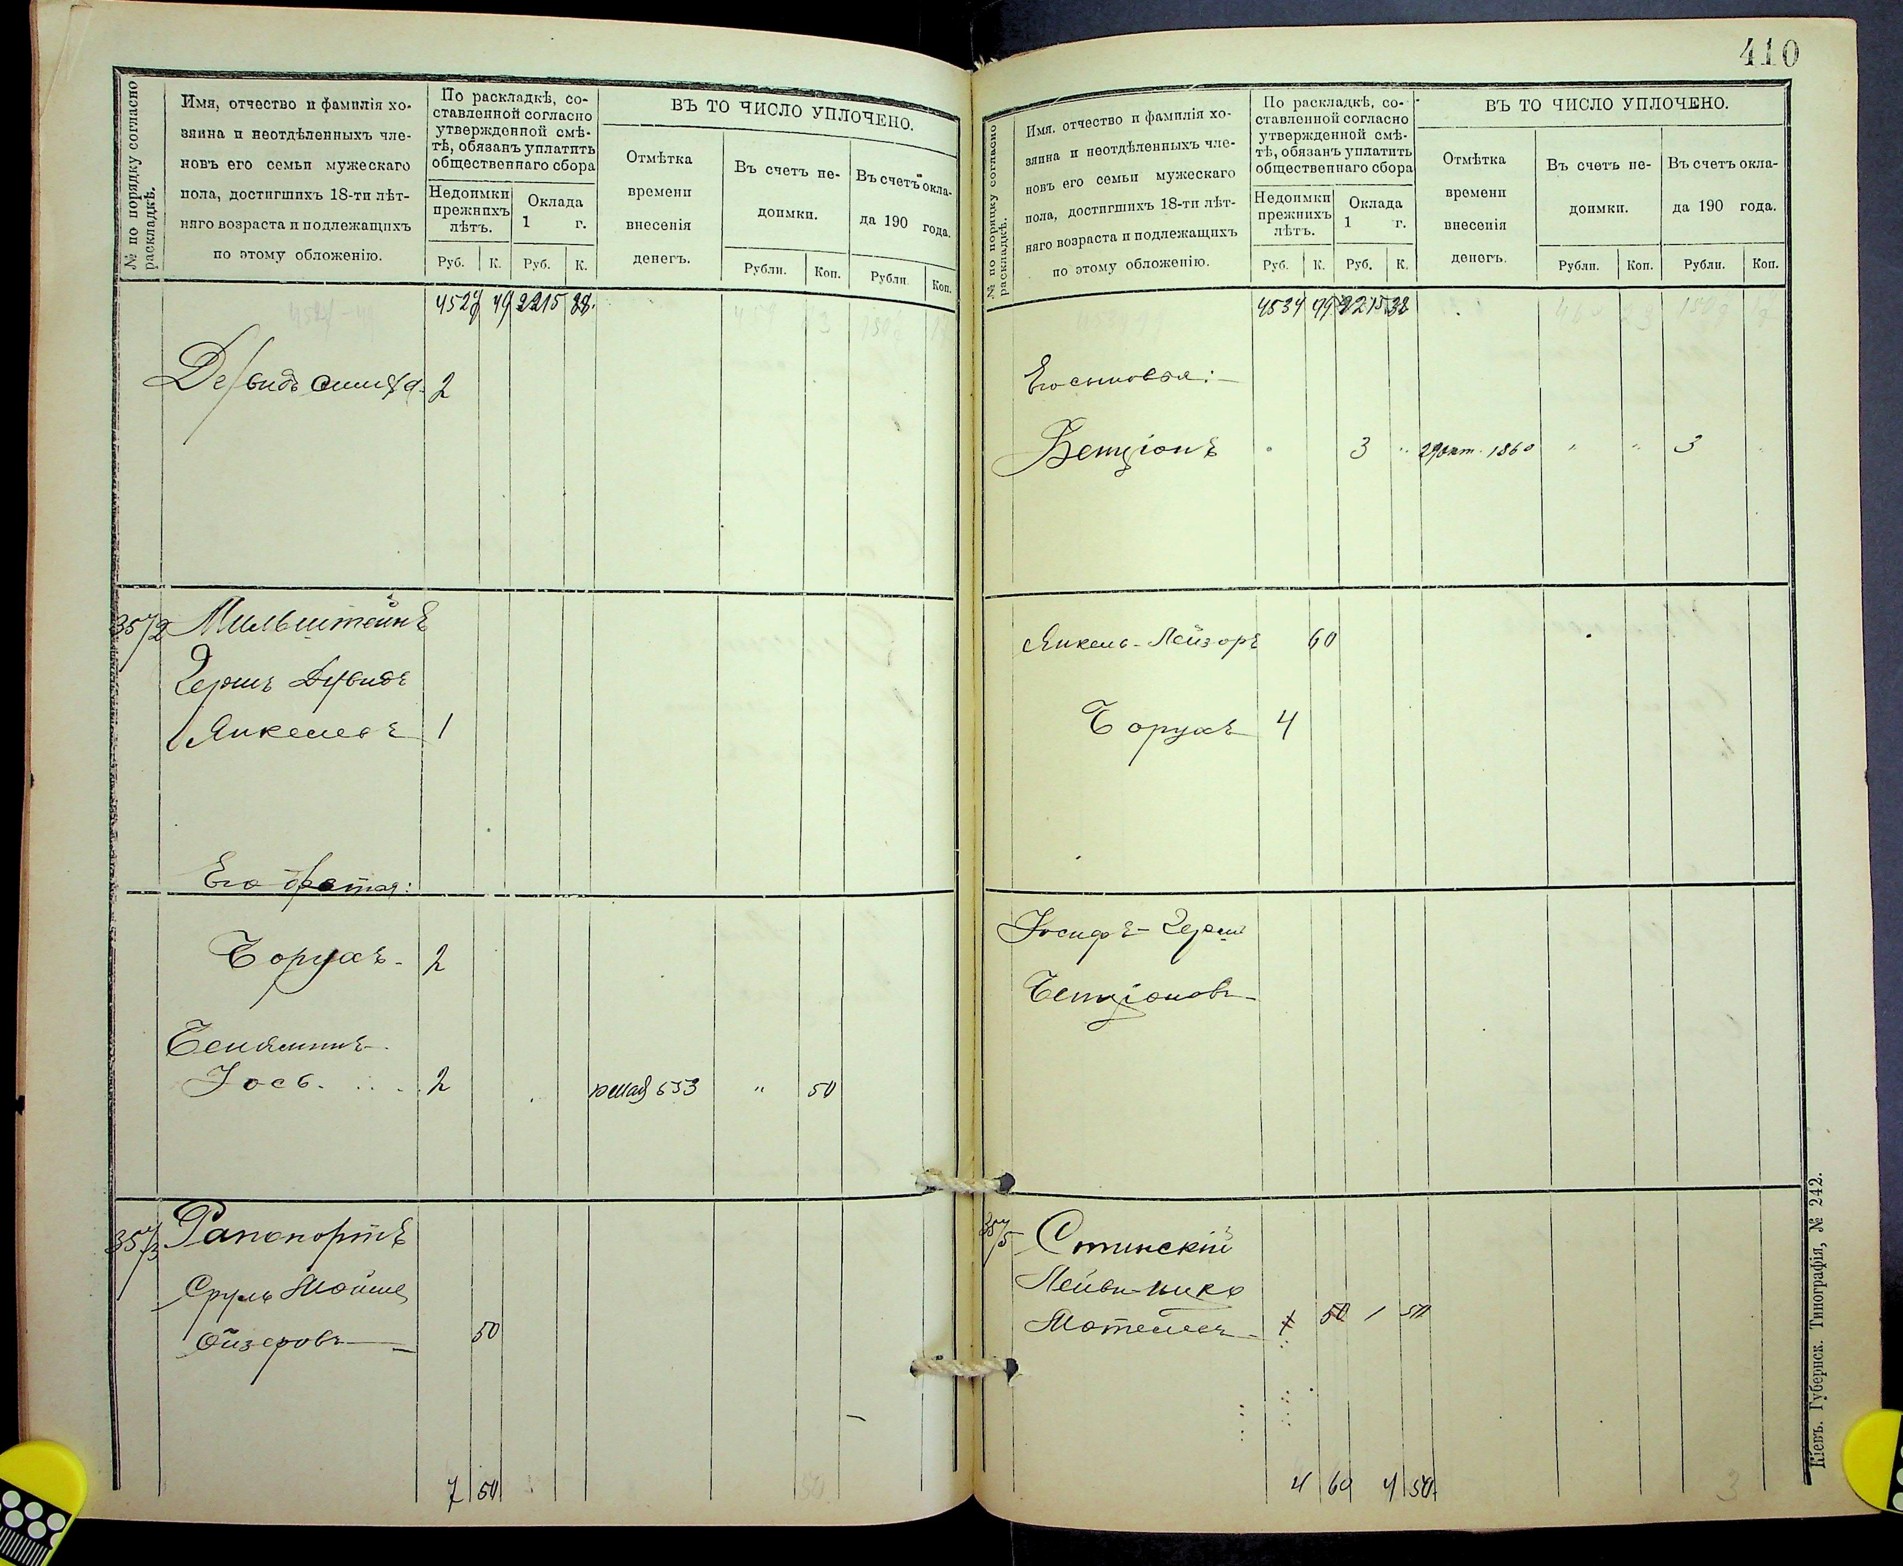 410
№ по порядку согласно раскладкѣ.
Имя, отчество и фамилія хо-
зяина и неотдѣленныхъ чле-
новъ его семьи мужескаго
пола, достигшихъ 18-ти лѣт-
няго возраста и подлежащихъ
по этому обложенію.
По раскладкѣ, со-
ставленной согласно
утвержденной смѣ-
тѣ, обязанъ уплатить
общественнаго сбора
Недоимки прежнихъ лѣтъ.
Оклада 1 г.
Руб. К. Руб. К.
ВЪ ТО ЧИСЛО УПЛОЧЕНО.
Отмѣтка
времени
внесенія
денегъ.
Въ счетъ не-
доимки.
Рубли. Коп.
Въ счетъ окла-
да 190 года.
Рубли Коп.
49 2215 38.
2
3572 Мильштейнъ
Гершъ Дувидъ
Янкелевъ 1
Его братья:
Борухъ 2
Беніяминъ
Іось 2 653 " 50
3573 Рапопортъ
Сруль Мойше
Ойзеровъ 50
7 50
№ по порядку согласно раскладкѣ.
Имя, отчество и фамилія хо-
зяина и неотдѣленныхъ чле-
новъ его семьи мужескаго
пола, достигшихъ 18-ти лѣт-
няго возраста и подлежащихъ
по этому обложенію.
По раскладкѣ, со-
ставленной согласно
утвержденной смѣ-
тѣ, обязанъ уплатить
общественнаго сбора
Недоимки прежнихъ лѣтъ.
Оклада 1 г.
Руб. К. Руб. К.
ВЪ ТО ЧИСЛО УПЛОЧЕНО.
Отмѣтка
времени
внесенія
денегъ.
Въ счетъ не-
доимки.
Рубли. Коп.
Въ счетъ окла-
да 190 года.
Рубли. Коп.
4534 99 2215 38
Его сыновья:
Бенціонъ 3 " 29 окт. 1860 " " 3
Янкель-Лейзоръ 60
Борухъ 4
Іосифъ-Герш
Бенціоновъ
3575 Стинскій
Лейви-Ицко
Мотелевъ 50 1 50
4 60 4 50
Кіевъ. Губернск. Типографія, № 242.